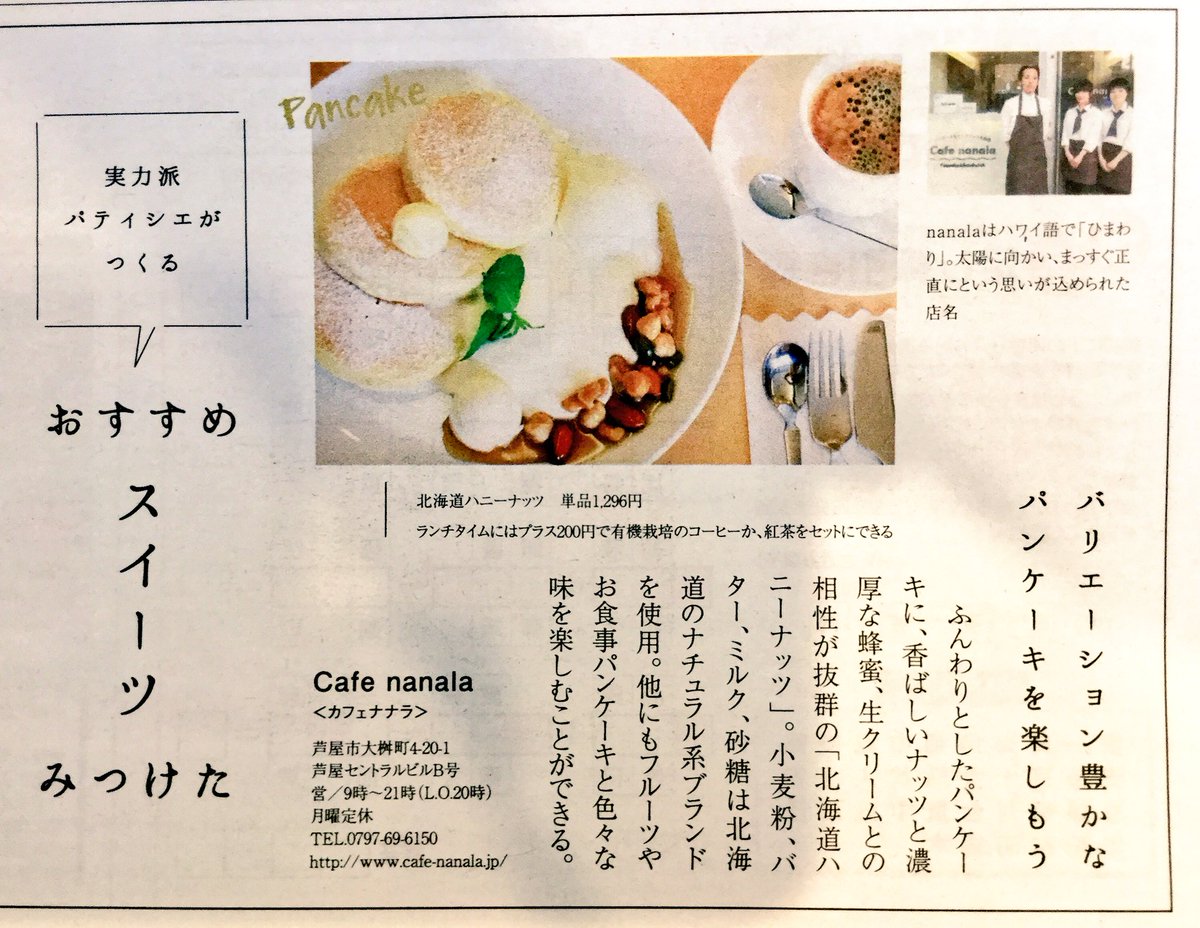 実力派
パティシエが
つくる
おすすめ
スイーツ
みつけた
Pancake
Cafe nanala
nanalaはハワイ語で「ひまわ
り」。太陽に向かい、まっすぐ正
直にという思いが込められた
店名
北海道ハニーナッツ　単品1,296円
ランチタイムにはプラス200円で有機栽培のコーヒーか、紅茶をセットにできる
バリエーション豊かな
パンケーキを楽しもう
ふんわりとしたパンケー
キに、香ばしいナッツと濃
厚な蜂蜜、生クリームとの
相性が抜群の「北海道ハ
ニーナッツ」。小麦粉、バ
ター、ミルク、砂糖は北海
道のナチュラル系ブランド
を使用。他にもフルーツや
お食事パンケーキと色々な
味を楽しむことができる。
Cafe nanala
＜カフェナナラ＞
芦屋市大桝町4-20-1
芦屋セントラルビルB号
営／9時〜21時（L.O.20時）
月曜定休
TEL.0797-69-6150
http://www.cafe-nanala.jp/